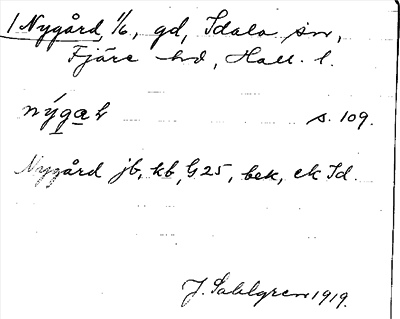 1 Nygård 1/6, gd, Idala sn,
Fjäre hd, Hall. l.
nýga s. 109.
Nygård jb, kb, G 25, bek, ek Id.
J. Sahlgren 1919.